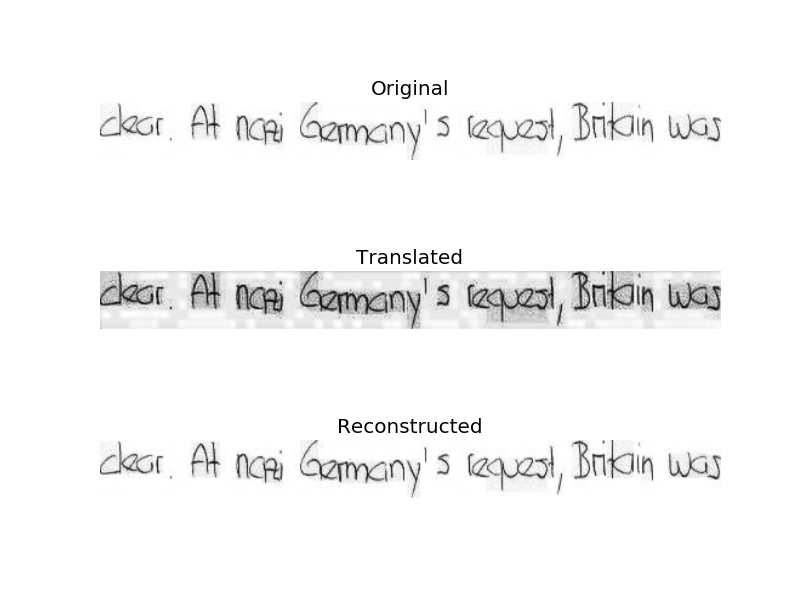 Original
clear. At nazi Germany's request, Britain was
Translated
clear. At nazi Germany's request, Britain was
Reconstructed
clear. At nazi Germany's request, Britain was